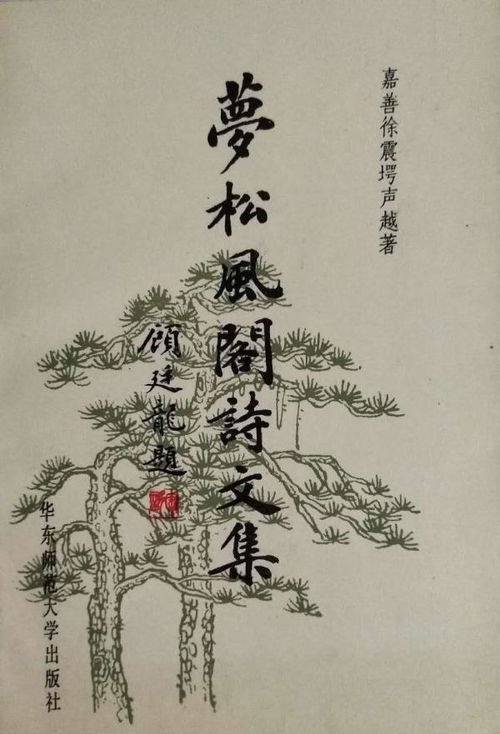 嘉善徐震堮声越著
夢松風閣詩文集
顧廷龍題
华东师范大学出版社